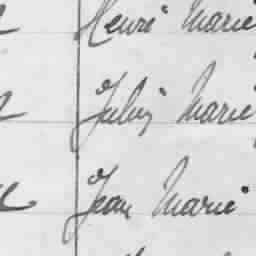 Henri Marie
Julien Marie
Jean Marie